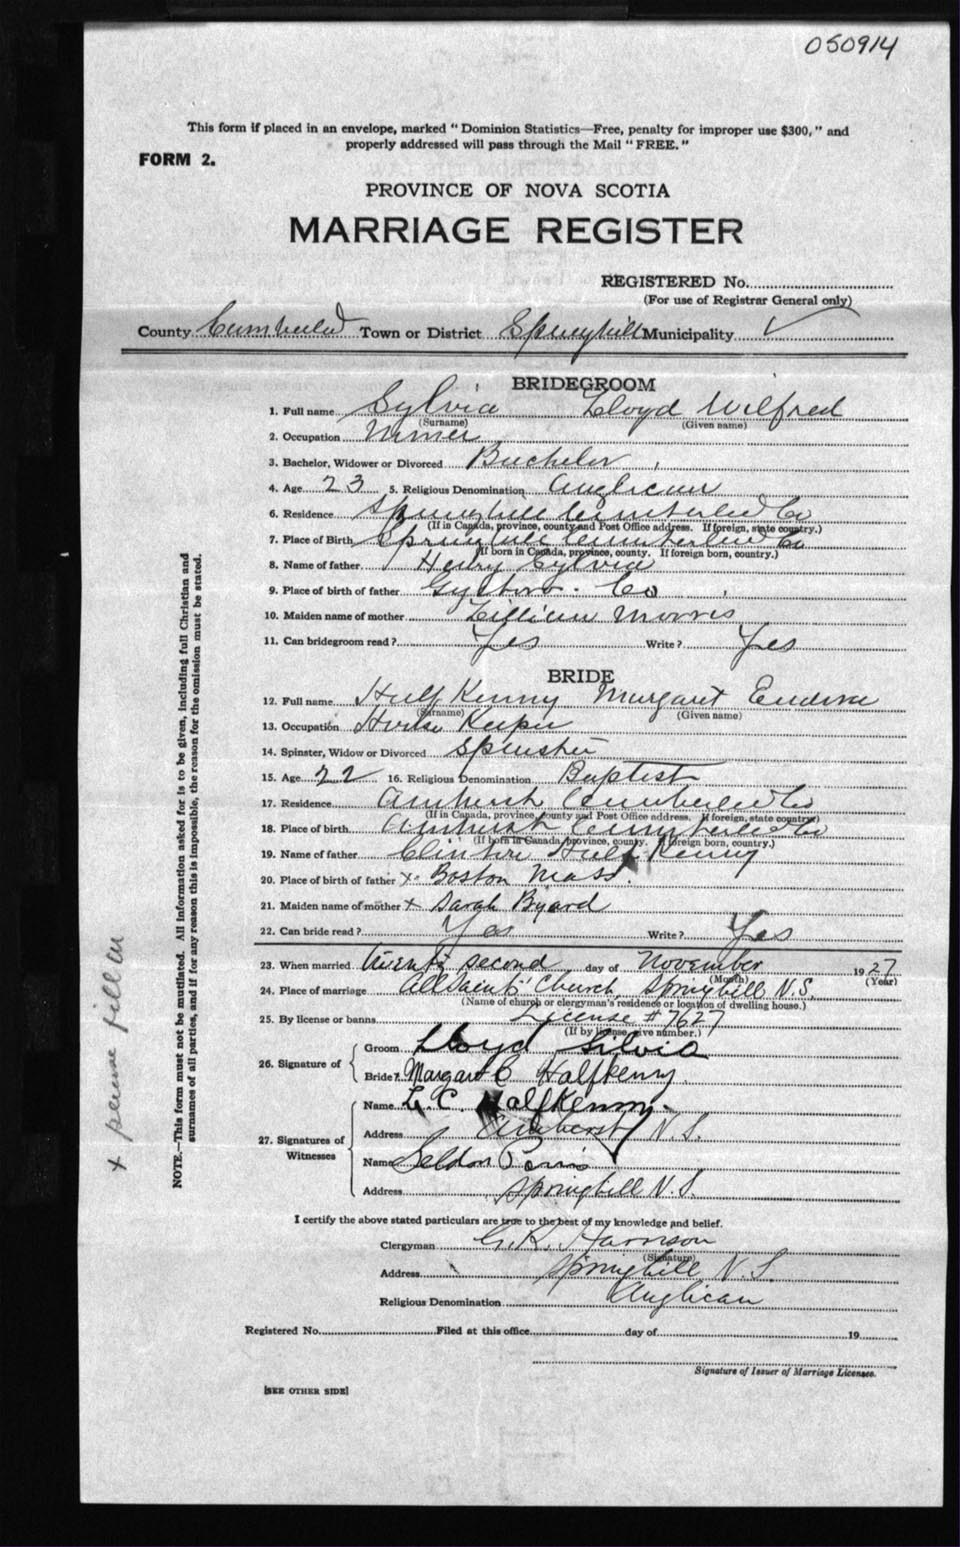 050914
This form if placed in an envelope, marked "Dominion Statistics—Free, penalty for improper use $300," and
properly addressed will pass through the Mail "FREE."
FORM 2.
PROVINCE OF NOVA SCOTIA
MARRIAGE REGISTER
REGISTERED No.
(For use of Registrar General only)
County Cumberland Town or District Springhill Municipality ✓
BRIDEGROOM
1. Full name Sylvia Lloyd Wilfred
(Surname) (Given name)
2. Occupation Miner
3. Bachelor, Widower or Divorced Bachelor
4. Age 23 5. Religious Denomination Anglican
6. Residence Springhill Cumberland Co
(If in Canada, province, county and Post Office address. If foreign, state country.)
7. Place of Birth Springhill Cumberland Co
(If born in Canada, province, county. If foreign born, country.)
8. Name of father Henry Sylvia
9. Place of birth of father Gysboro. Co
10. Maiden name of mother Lillian Morris
11. Can bridegroom read? Yes Write? Yes
BRIDE
12. Full name Half Kenny Margaret
(Surname) (Given name)
13. Occupation House Keeper
14. Spinster, Widow or Divorced Spinster
15. Age 22 16. Religious Denomination Baptist
17. Residence Amherst Cumberland Co
(If in Canada, province, county and Post Office address. If foreign, state country)
18. Place of birth Amherst Cumberland Co
(If born in Canada, province, county. If foreign born, country.)
19. Name of father Clinton Half Kenny
20. Place of birth of father x Boston Mass.
21. Maiden name of mother x Sarah Byard
22. Can bride read? Yes Write? Yes
23. When married twenty second day of November 1927
(Month) (Year)
24. Place of marriage All Saints' Church, Springhill N.S.
(Name of church or clergyman's residence or location of dwelling house.)
25. By license or banns License # 7627
(If by license, give number.)
26. Signature of
Groom Lloyd Silvia
Bride Margaret C Halfkenny
27. Signatures of Witnesses
Name L. C. Halfkenny
Address Amherst N.S.
Name Seldon
Address Springhill N.S.
I certify the above stated particulars are true to the best of my knowledge and belief.
Clergyman G.K. Harrison
(Signature)
Address Springhill N.S.
Religious Denomination Anglican
Registered No. Filed at this office day of 19
Signature of Issuer of Marriage Licenses.
[SEE OTHER SIDE]
NOTE.—This form must not be mutilated. All information asked for is to be given, including full Christian and
surnames of all parties, and if for any reason this is impossible, the reason for the omission must be stated.
x please fill in